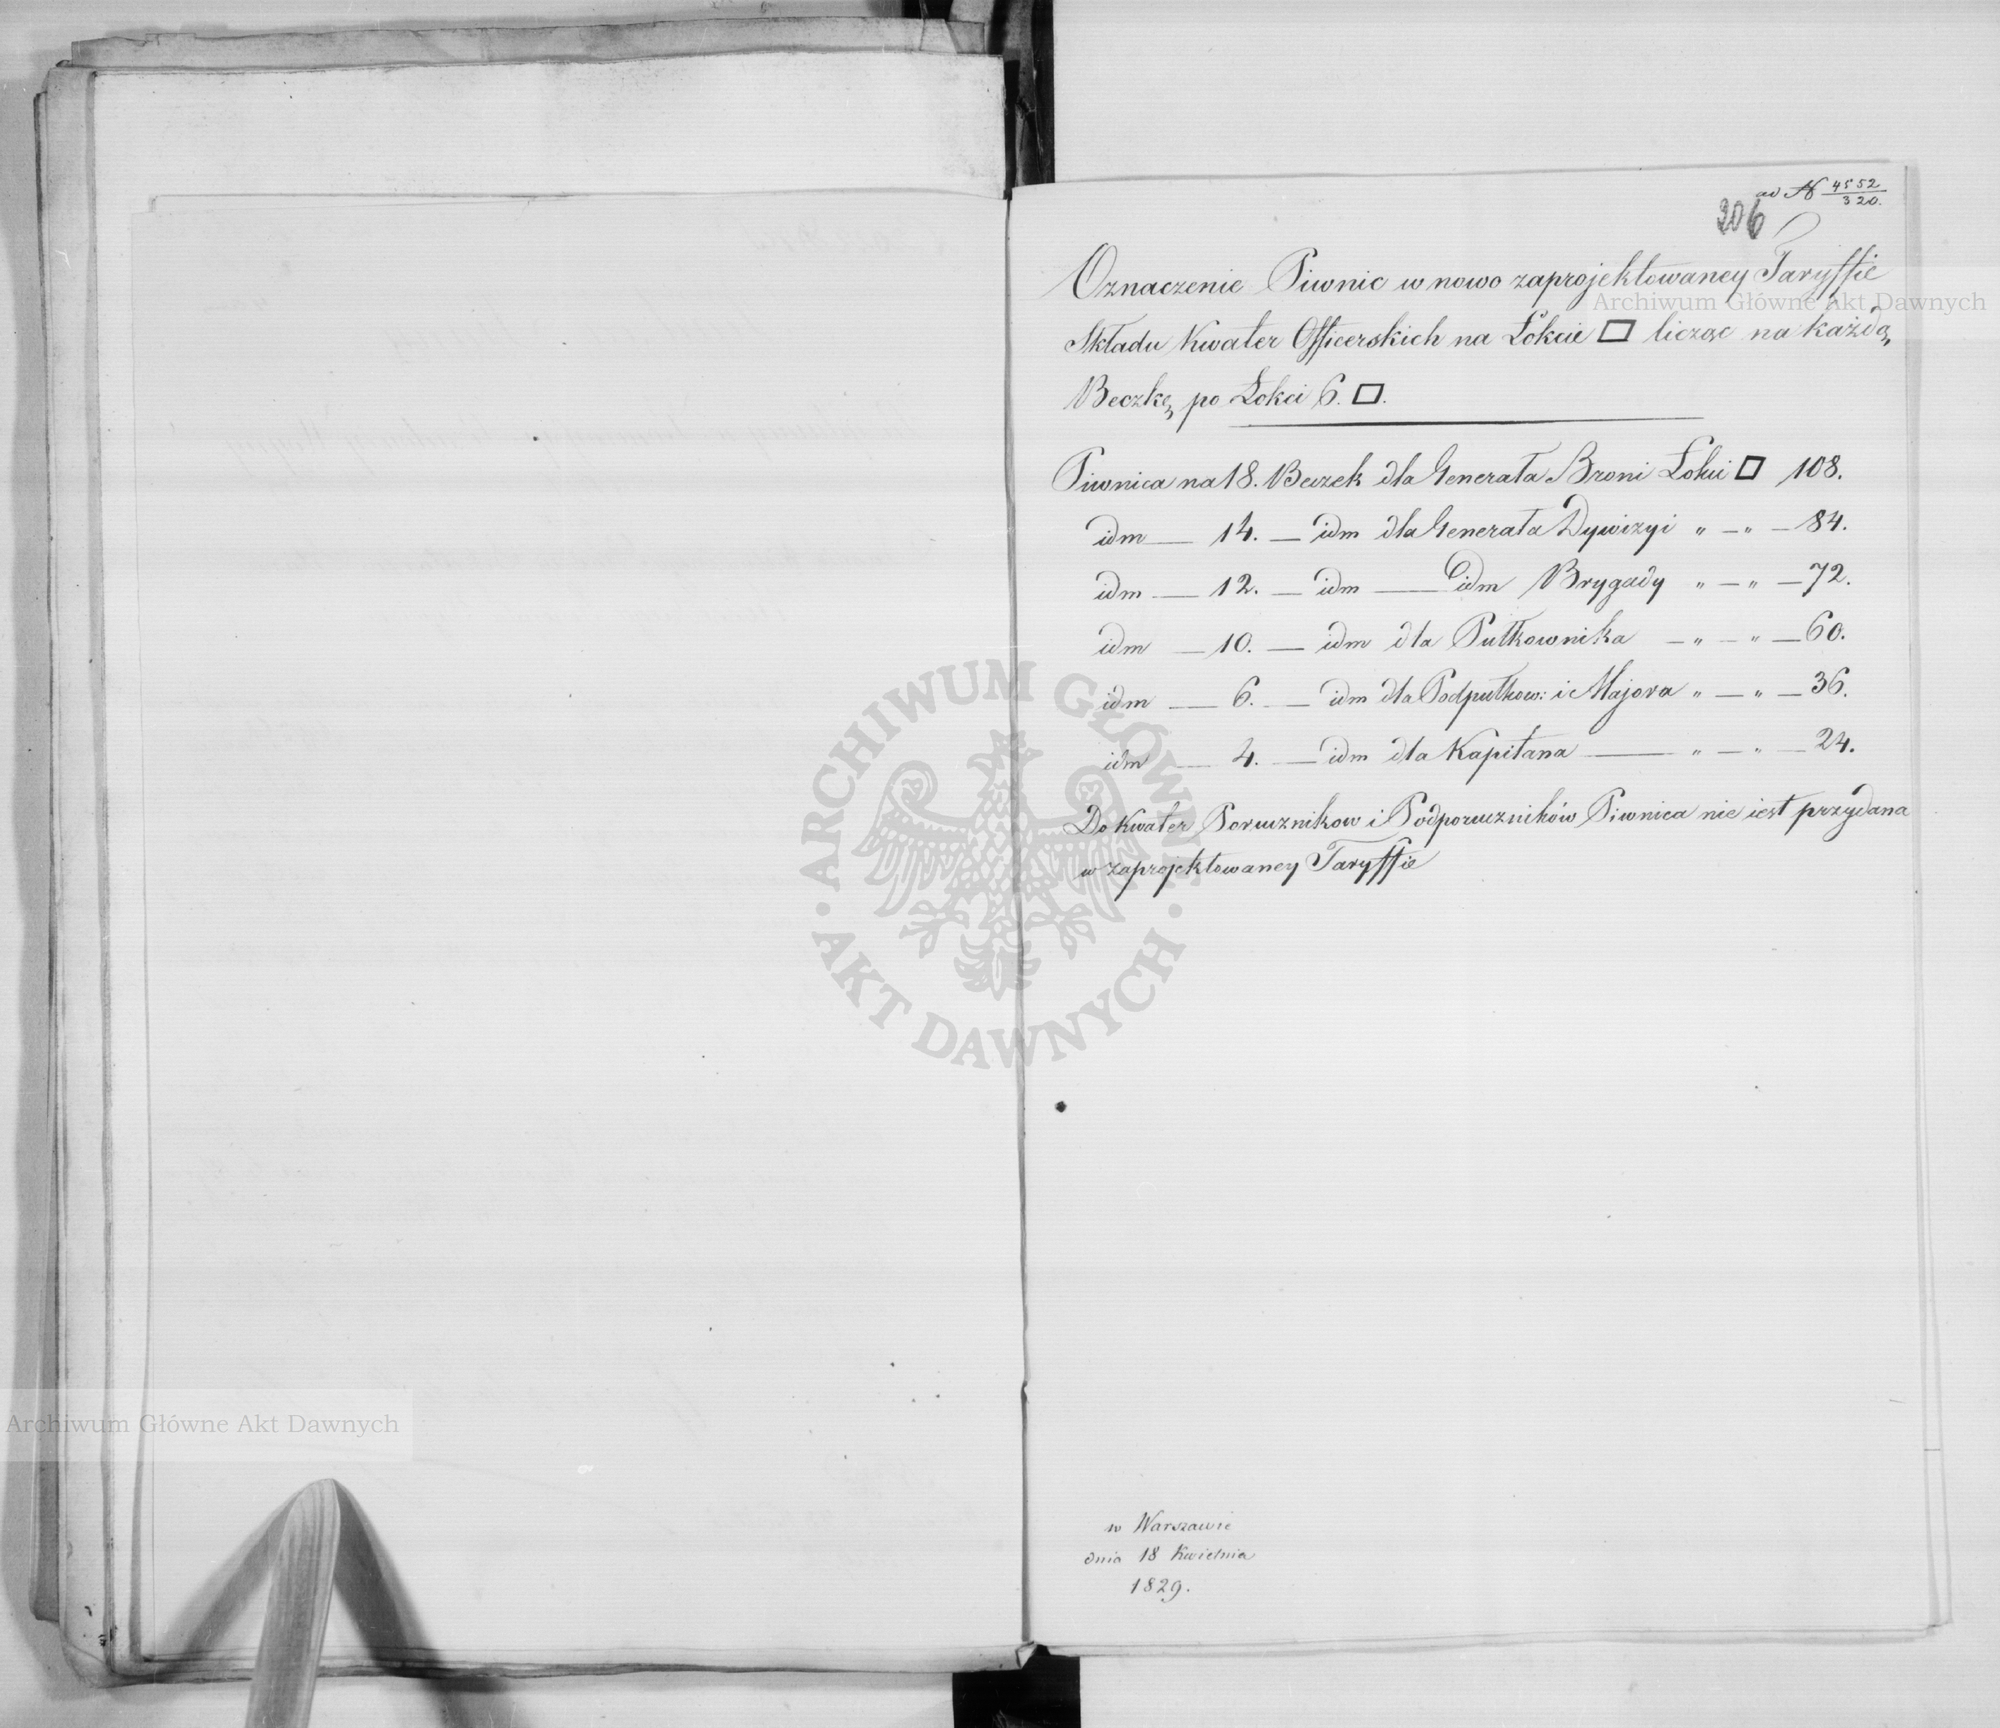 ad N 4552/320.
206
Oznaczenie Piwnic w nowo zaprojektowaney Taryffie
Składu Kwater Officerskich na Łokcie □ licząc na każdą
Beczkę po Łokci 6. □.
Piwnica na 18. Beczek dla Generała Broni Łokci □ 108.
idm — 14. — idm dla Generała Dywizyi " — " — 84.
idm — 12. — idm — idm Brygady " — " — 72.
idm — 10. — idm dla Pułkownika — " — " — 60.
idm — 6. — idm dla Podpułkow: i Majora " — " — 36.
idm — 4. — idm dla Kapitana — " — " — 24.
Do Kwater Poruczników i Podporuczników Piwnica nie iest przydana
w zaprojektowaney Taryffie
w Warszawie
dnia 18 Kwietnia
1829.
Archiwum Główne Akt Dawnych
ARCHIWUM GŁÓWNE · AKT DAWNYCH ·
Archiwum Główne Akt Dawnych